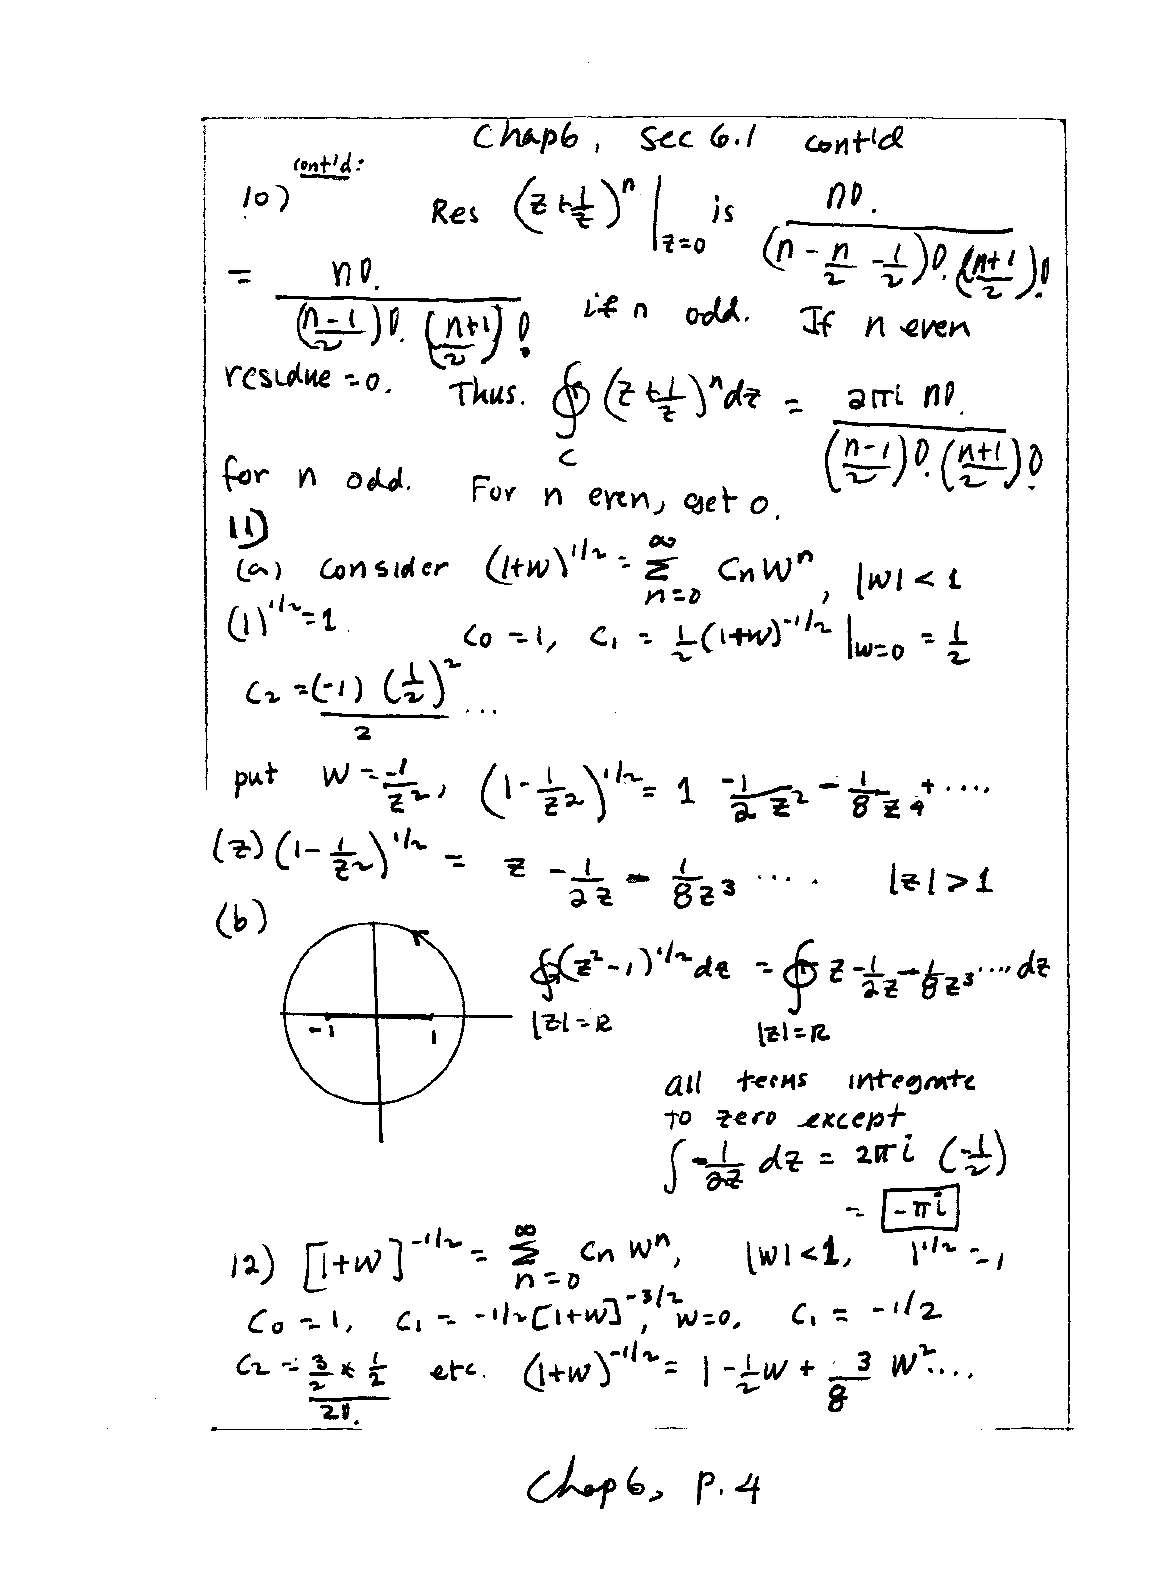 Chap 6, Sec 6.1 cont'd
cont'd:
10) Res (z + 1/z)^n |_{z=0} is n! / ((n - n/2 - 1/2)! ((n+1)/2)!)
= n! / (((n-1)/2)! ((n+1)/2)!) if n odd. If n even
residue = 0. Thus. ∮_C (z + 1/z)^n dz = 2πi n! / (((n-1)/2)! ((n+1)/2)!)
for n odd. For n even, get 0.
11)
(a) Consider (1+w)^{1/2} = Σ_{n=0}^{∞} Cn w^n, |w| < 1
(1)^{1/2} = 1. C0 = 1, C1 = 1/2 (1+w)^{-1/2} |_{w=0} = 1/2
C2 = (-1) (1/2)^2 / 2 ...
put w = -1/z^2, (1 - 1/z^2)^{1/2} = 1 - 1/2z^2 - 1/8z^4 + ....
(z)(1 - 1/z^2)^{1/2} = z - 1/2z - 1/8z^3 .... |z| > 1
(b)
-1 1
∮_{|z|=R} (z^2 - 1)^{1/2} dz = ∮_{|z|=R} z - 1/2z - 1/8z^3 .... dz
all terms integrate
to zero except
∫ -1/2z dz = 2πi (-1/2)
= -πi
12) [1+w]^{-1/2} = Σ_{n=0}^{∞} Cn w^n, |w| < 1, 1^{1/2} = 1
C0 = 1, C1 = -1/2 [1+w]^{-3/2}, w=0, C1 = -1/2
C2 = 3/2 * 1/2 / 2! etc. (1+w)^{-1/2} = 1 - 1/2 w + 3/8 w^2 ....
Chap 6, p. 4